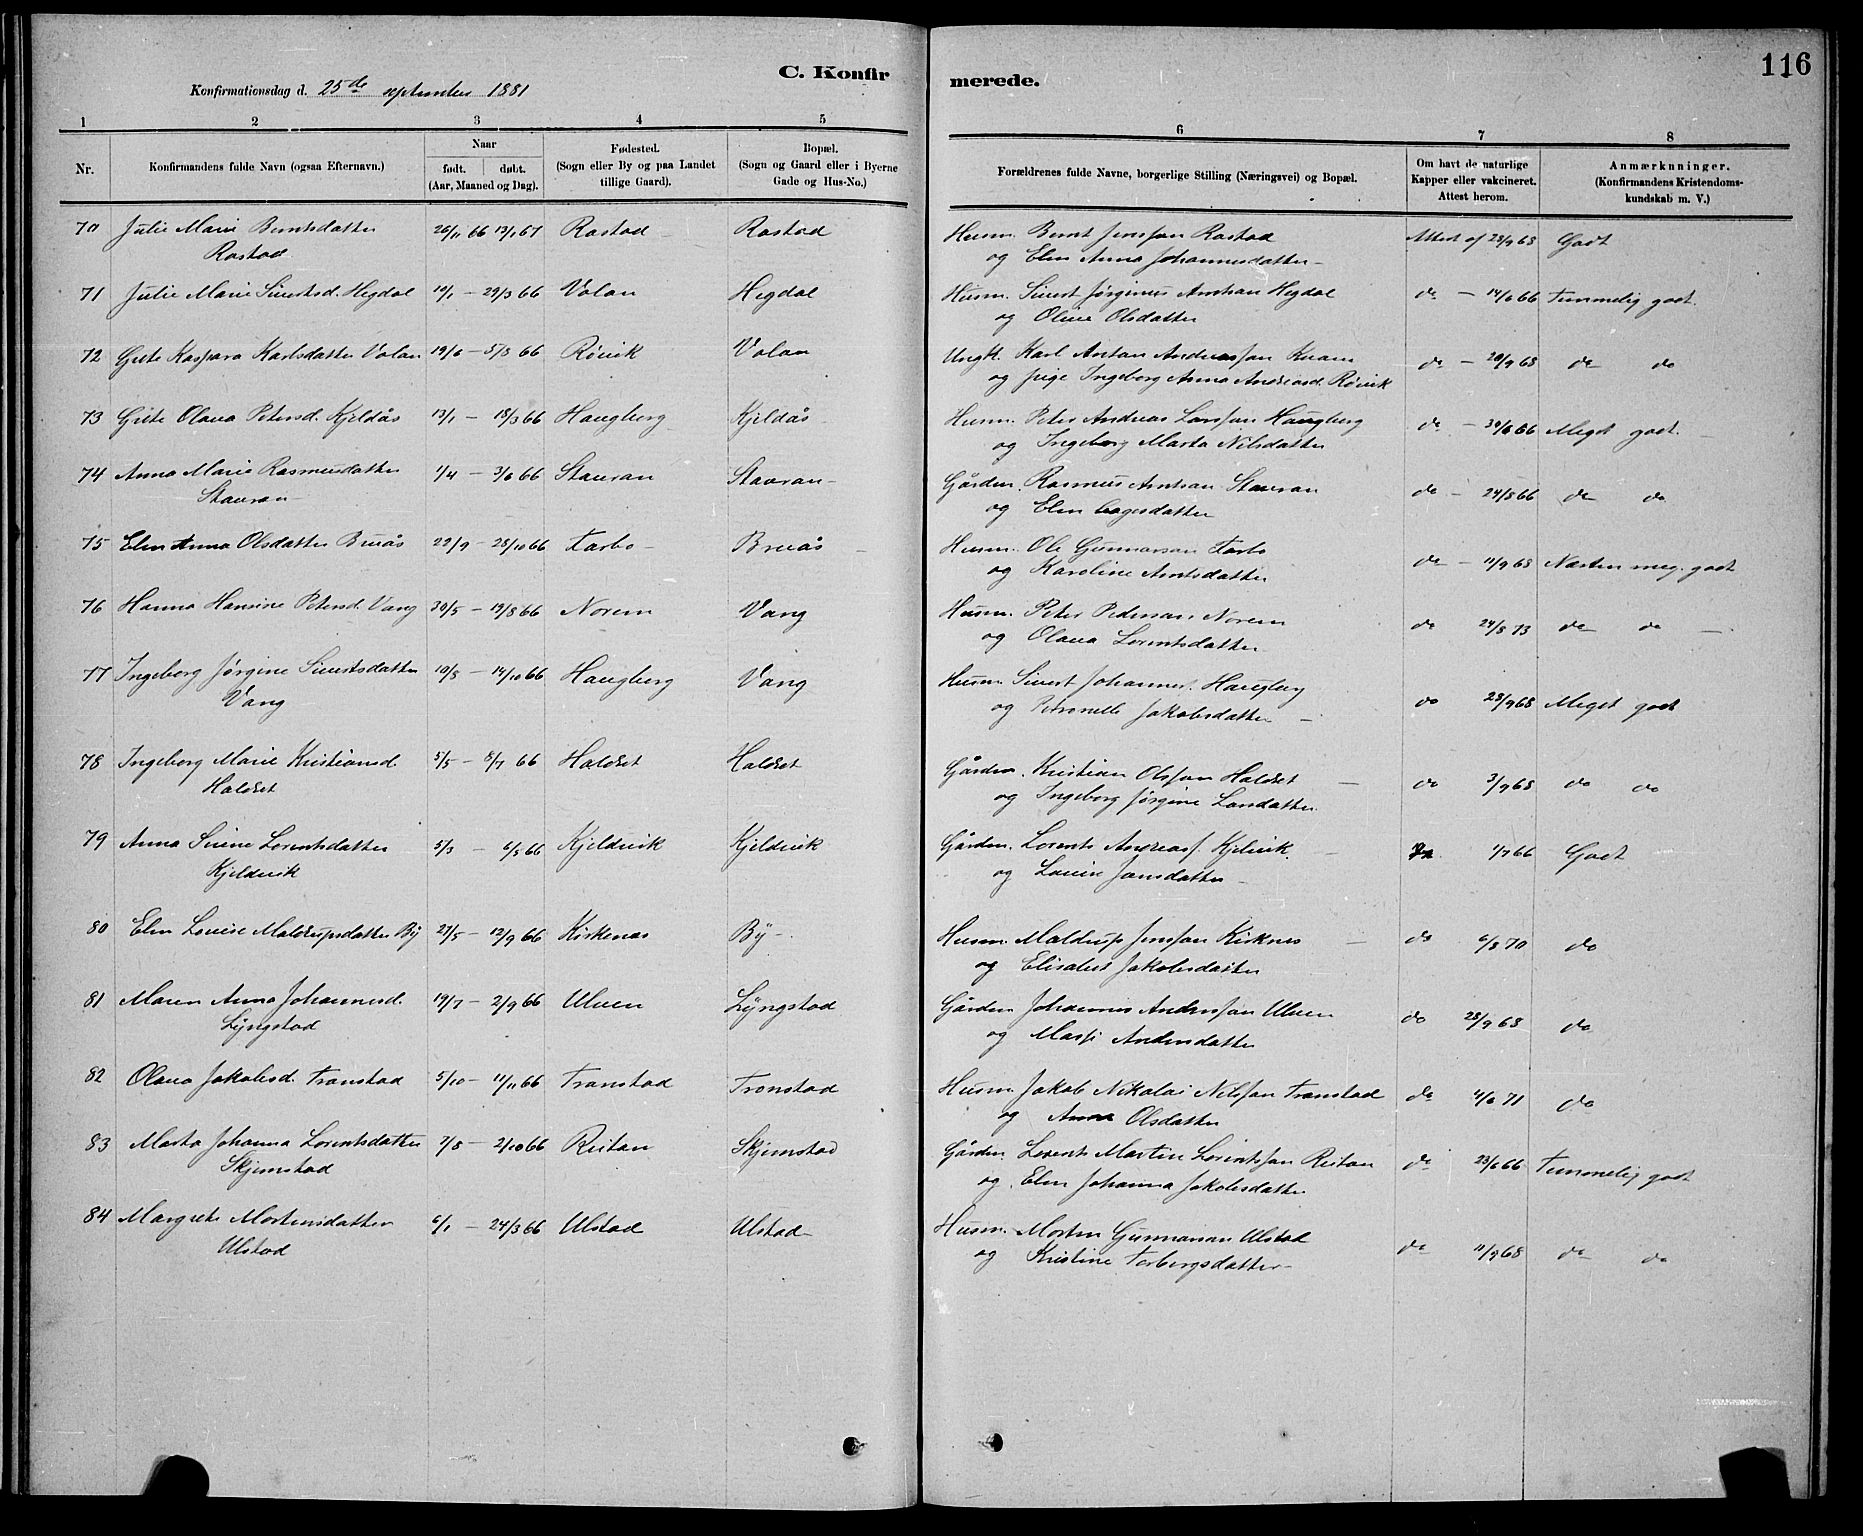 116
C. Konfirmerede.
Konfirmationsdag d. 25de september 1881
1 2 3 4 5 6 7 8
Nr. Konfirmandens fulde Navn (ogsaa Efternavn). Naar født. døbt. (Aar, Maaned og Dag). Fødested. (Sogn eller By og paa Landet tillige Gaard). Bopæl. (Sogn og Gaard eller i Byerne Gade og Hus-No.) Forældrenes fulde Navne, borgerlige Stilling (Næringsvei) og Bopæl. Om havt de naturlige Kapper eller vakcineret. Attest herom. Anmærknninger. (Konfirmandens Kristendomskundskab m. V.)
70 Julie Marie Berntsdatter 26/11 66 13/1 67 Rostad Rostad Husm. Bernt Jenssen Rostad Attest af 28/9 68 Godt
Rostad og Elen Anna Johannesdatter
71 Julie Marie Sivertsd. Hegdal 10/1 – 29/3 66 Volan Hegdal Husm. Sivert Jørginus Arntsan Hegdal do – 14/6 66 Temmelig godt.
og Oline Olsdatter
72 Gjete Kaspara Karlsdatter Volan 19/6 – 5/8 66 Røvik Volan Ungk. Karl Anton Andreassan Kvam do – 20/9 68 do do
og pige Ingeborg Anna Andreasd. Røvik
73 Gjete Olava Petersd. Kjeldås 13/1 – 18/3 66 Haugberg Kjeldås Husm. Peter Andreas Larssan Haugberg do – 30/6 66 Meget godt.
og Ingeborg Marta Nilsdatter
74 Anna Marie Rasmusdatter 1/4 – 3/6 66 Stavran Stavran Gårdm. Rasmus Arntsan Stavran do – 24/8 66 do do
Stavran og Elen Aagesdatter
75 Elen Anna Olsdatter Bruås 22/9 – 28/10 66 Farbo Bruås Husm. Ole Gunnarsan Farbo do – 11/9 68 Næsten meg. godt
og Karoline Arntsdatter
76 Hanna Hansine Petersd. Vang 30/5 – 19/8 66 Norem Vang Husm. Peter Pedersan Norem do 24/8 73 do do
og Olava Lorentsdatter
77 Ingeborg Jørgine Sivertsdatter 19/8 – 14/10 66 Haugberg Vang Husm. Sivert Johannes. Haugberg do 28/9 68 Meget godt
Vang og Petronelle Jakobsdatter
78 Ingeborg Marie Kristiansd. 5/5 – 8/7 66 Haldset Haldset Gårdm. Kristian Olssan Haldset do 3/9 68 do do
Haldset og Ingeborg Jørgine Larsdatter
79 Anna Sirine Lorentsdatter 5/3 – 6/5 66 Kjeldvik Kjeldvik Gårdm. Lorents Andreass. Kjelvik do 1/7 66 Godt
Kjeldvik og Lovise Jonsdatter
80 Elen Lovise Maldrupsdatter By 27/5 – 12/9 66 Kirkenæs By Husm. Maldrup Jenssan Kirknes do 6/8 70 do
og Elisabet Jakobsdatter
81 Maren Anna Johannesd. 19/7 – 2/9 66 Ulven Lyngstad Gårdm Johannes Anderssan Ulven do 28/9 68 do
Lyngstad og Massi Andersdatter
82 Olava Jakobsd. Tronstad 5/10 – 11/11 66 Tronstad Tronstad Husm Jakob Nikolai Nilssan Tronstad do 4/6 71 do
og Anne Olsdatter
83 Marta Johanna Lorentsdatter 7/8 – 2/10 66 Reitan Skjemstad Gårdm Lorents Martin Lorentssan Reitan do 23/6 66 Temmelig godt
Skjemstad og Elen Johanna Jakobsdatter
84 Margrete Mortensdatter 6/1 – 24/3 66 Ulstad Ulstad Husm. Morten Gunnarsan Ulstad do 11/9 68 do do
Ulstad og Kristine Torbergsdatter